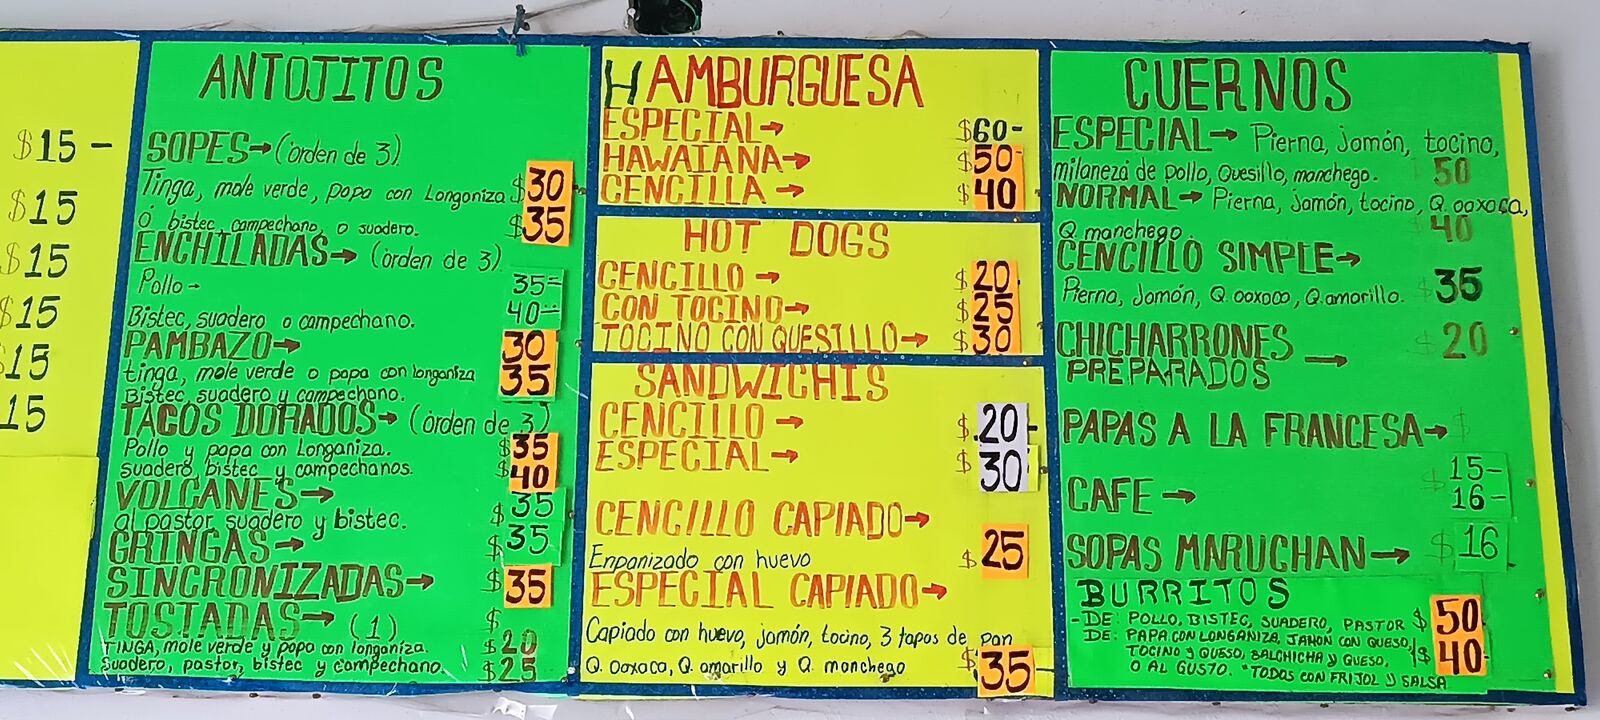 $15-
$15
$15
$15
$15
15
ANTOJITOS
SOPES→(orden de 3)
Tinga, mole verde, papa con Longaniza $30
Ó bistec, campechano, o suadero. $35
ENCHILADAS→ (orden de 3)
Pollo- 35=
Bistec, suadero o campechano. 40=
PAMBAZO→ 30
tinga, mole verde o papa con longaniza 35
Bistec, suadero y campechano.
TACOS DORADOS→ (orden de 3)
Pollo y papa con Longaniza. $35
suadero, bistec y campechanos. $40
VOLCANES→ $35
al pastor, suadero y bistec.
GRINGAS→ $35
SINCRONIZADAS→ $35
TOSTADAS (1) $
TINGA, mole verde y papa con longaniza. $20
Suadero, pastor, bistec y campechano. $25
HAMBURGUESA
ESPECIAL→ $60-
HAWAIANA→ $50-
CENCILLA $40
HOT DOGS
CENCILLO→ $20
CON TOCINO→ $25
TOCINO CON QUESILLO→ $30
SANDWICHIS
CENCILLO→ $20-
ESPECIAL→ $30
CENCILLO CAPIADO→
Enpanizado con huevo $25
ESPECIAL CAPIADO→
Capiado con huevo, jamón, tocino, 3 tapas de pan
Q. Oaxaca, Q. amarillo y Q. manchego $35
CUERNOS
ESPECIAL→ Pierna, jamón, tocino,
milaneza de pollo, Quesillo, manchego. 50
NORMAL→ Pierna, jamón, tocino, Q. oaxaca,
Q. manchego. 40
CENCILLO SIMPLE→
Pierna, Jamón, Q. oaxaca, Q. amarillo. $35
CHICHARRONES → $20
PREPARADOS
PAPAS A LA FRANCESA→ $
15-
CAFE→ 16-
SOPAS MARUCHAN→ $16
BURRITOS
-DE: POLLO, BISTEC, SUADERO, PASTOR $50
DE: PAPA CON LONGANIZA, JAMON CON QUESO,
TOCINO Y QUESO, SALCHICHA Y QUESO, $40-
O AL GUSTO. *TODOS CON FRIJOL Y SALSA